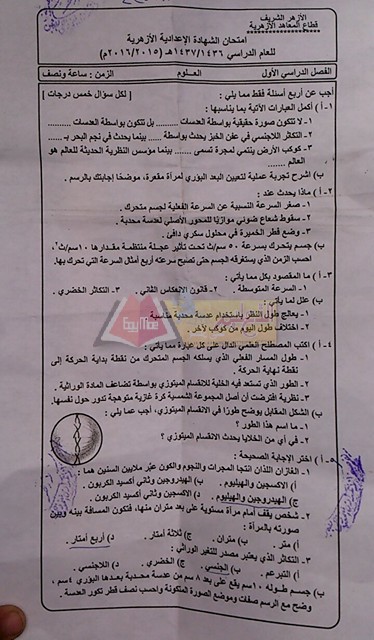 الأزهر الشريف
قطاع المعاهد الأزهرية
امتحان الشهادة الإعدادية الأزهرية
للعام الدراسي ١٤٣٧/١٤٣٦هـ (٢٠١٦/٢٠١٥م)
الفصل الدراسي الأول العلوم الزمن: ساعة ونصف
أجب عن أربع أسئلة فقط مما يلي: [ لكل سؤال خمس درجات ]
١- أ) أكمل العبارات الآتية بما يناسبها:
١- لا تتكون صورة حقيقية بواسطة العدسات ........ بل تتكون بواسطة العدسات ........
٢- التكاثر اللاجنسي في عفن الخبز يحدث بواسطة ..... بينما يحدث في نجم البحر بـ .....
٣- كوكب الأرض ينتمي لمجرة تسمى ........ بينما مؤسس النظرية الحديثة للعالم هو
العالم ........
ب) اشرح تجربة عملية لتعيين البعد البؤري لمرآة مقعرة، موضحًا إجابتك بالرسم.
٢- أ) ماذا يحدث عند:
١- صفر السرعة النسبية عن السرعة الفعلية لجسم متحرك.
٢- سقوط شعاع ضوئي موازيًا للمحور الأصلي لعدسة محدبة.
٣- وضع فطر الخميرة في محلول سكري دافئ.
ب) جسم يتحرك بسرعة ٥٠ سم/ث تحت تأثير عجلة منتظمة مقدارها ١٠سم/ث٢،
احسب الزمن الذي يستغرقه الجسم حتى تصبح سرعته أربع أمثال السرعة التي تحرك بها.
٣- أ) ما المقصود بكل مما يأتي:
١- السرعة المتوسطة ٢- قانون الانعكاس الثاني. ٣- التكاثر الخضري.
ب) علل لما يأتي:
١- يعالج طول النظر باستخدام عدسة محدبة
٢- اختلاف طول اليوم من كوكب لآخر.
٤- أ) اكتب المصطلح العلمي الدال على كل عبارة مما يأتي:
١- طول المسار الفعلي الذي يسلكه الجسم المتحرك من نقطة بداية الحركة إلى
نقطة نهاية الحركة.
٢- الطور الذي تستعد فيه الخلية للانقسام الميتوزي بواسطة تضاعف المادة الوراثية.
٣- نظرية افترضت أن أصل المجموعة الشمسية كرة غازية متوهجة تدور حول نفسها.
ب) الشكل المقابل يوضح طورًا في الانقسام الميتوزي، أجب عما يلي:
١- ما اسم هذا الطور؟
٢- في أي من الخلايا يحدث الانقسام الميتوزي؟
٥- أ) اختر الإجابة الصحيحة:
١- الغازان اللذان أنتجا المجرات والنجوم والكون عبر ملايين السنين هما:
أ) الأكسجين والهيليوم. ب) الهيدروجين وثاني أكسيد الكربون.
ج) الهيدروجين والهيليوم. د) الأكسجين وثاني أكسيد الكربون.
٢- شخص يقف أمام مرآة مستوية على بعد متران منها، فتكون المسافة بينه وبين
صورته بالمرآة:
أ) متر. ب) متران. ج) ثلاثة أمتار. د) أربع أمتار.
٣- التكاثر الذي يعتبر مصدر للتغير الوراثي:
أ) التبرعم. ب) الجنسي. ج) الخضري. د) اللاجنسي.
ب) جسم طوله ١٠سم يقع على بعد ٨ سم من عدسة محدبة بعدها البؤري ٤سم،
وضح مع الرسم صفات وموضع الصورة المتكونة واحسب نصف قطر تكور العدسة.